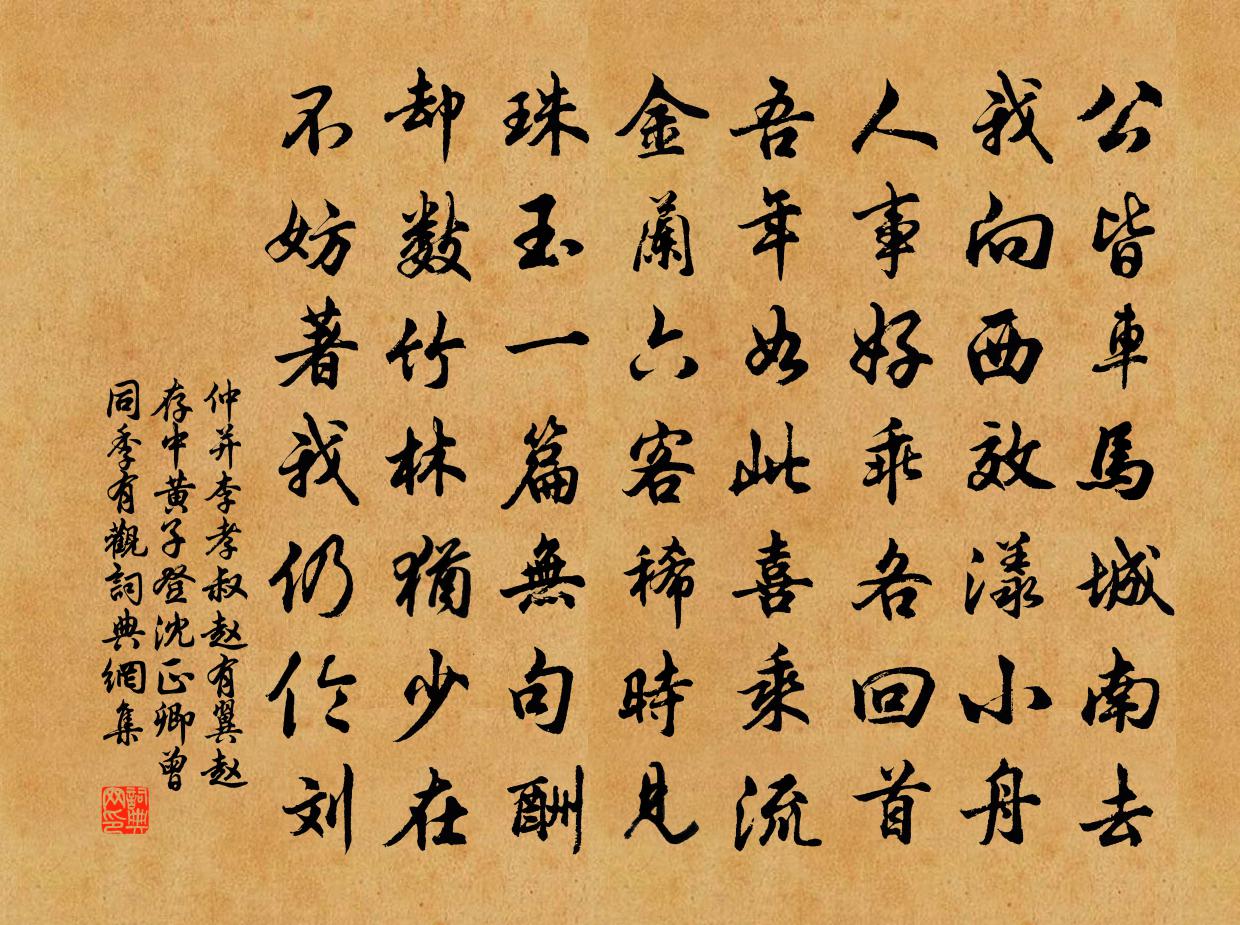 公皆車馬城南去
我向西效漾小舟
人事好乖各回首
吾年如此喜乘流
金蘭六客稀時見
珠玉一篇無句酬
却數竹林猶少在
不妨著我仍伶刘
仲并李孝叔赵有翼赵
存中黄子登沈正卿曾
同季有觀詞典網集
詞典网印